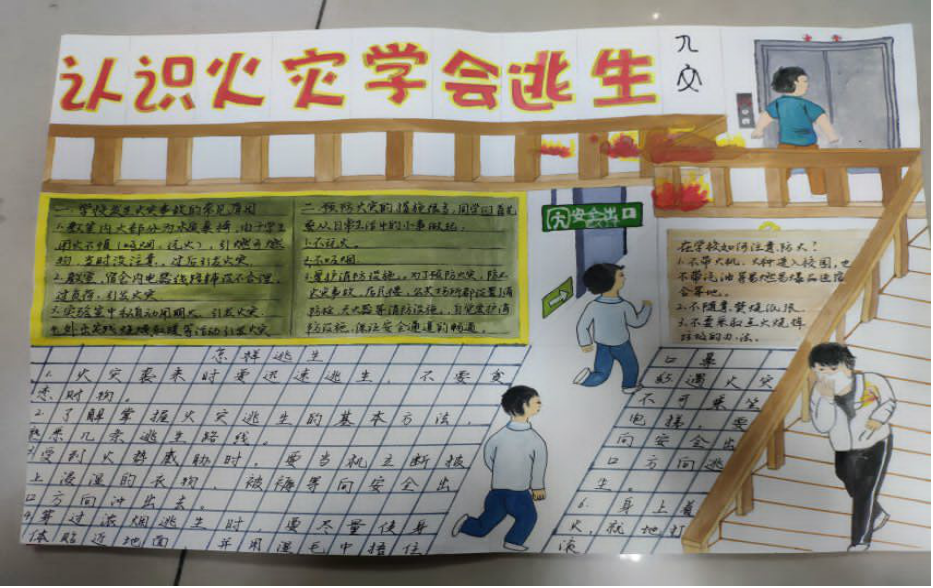 认识火灾学会逃生
九文
一、学校发生火灾事故的常见原因
1.教室内大部分为木质桌椅,由于学生
用火不慎(吸烟、玩火),引燃可燃
物,当时没注意,过后引发火灾
2.教室、宿舍内电器线路铺设不合理
过负荷,引发火灾
3.实验室中私自动用明火,引发火灾
4.外出实践烧烤取暖等活动引发火灾
二、预防火灾的措施很多,同学们首先
要从日常生活中的小事做起:
1.不玩火。
2.不吸烟
3.爱护消防设施。为了预防火灾,防止
火灾事故,居民楼、公共场所都设置了消
防栓、灭火器等消防设施,自觉爱护消
防设施,保证安全通道的畅通。
安全出口
在学校如何注意防火?
1.不带火机、火种进入校园,也
不带汽油等易燃易爆品进宿
舍等地。
2.不随意焚烧纸张
3.不要采取点火烧掉
垃圾的办法。
怎样逃生
1.火灾袭来时要迅速逃生,不要贪
恋财物。
2.了解掌握火灾逃生的基本方法,
熟悉几条逃生路线。
3.受到火势威胁时,要当机立断披
上浸湿的衣物、被褥等向安全出
口方向冲出去。
4.穿过浓烟逃生时,要尽量使身
体贴近地面,并用湿毛巾捂住
口鼻
5.遇火灾
不可乘坐
电梯要
向安全出
口方向逃
生。
6.身上着
火,就地打
滚